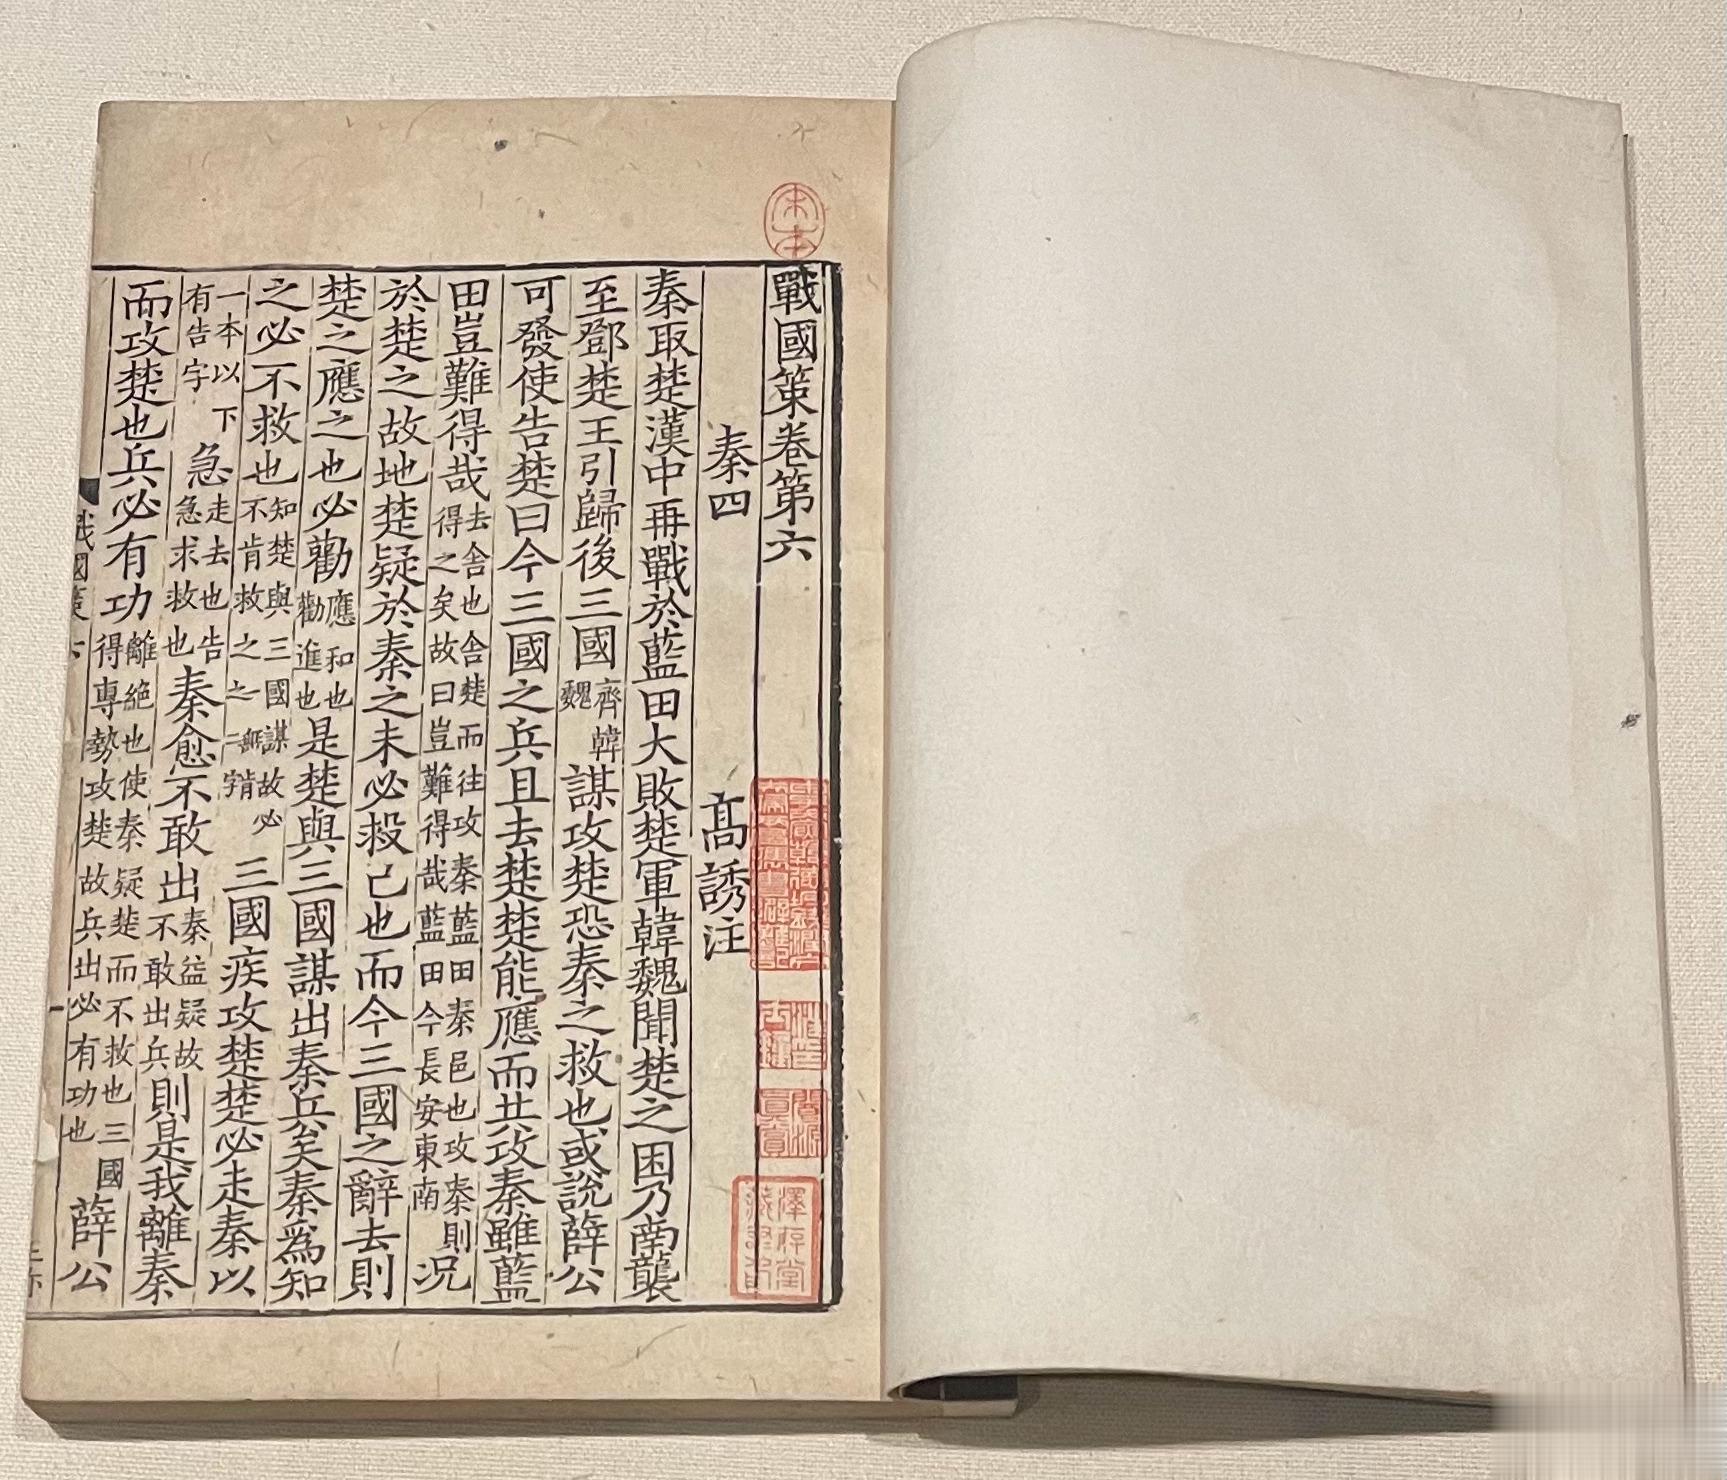 戰國策卷第六
秦四
高誘注
秦取楚漢中再戰於藍田大敗楚軍韓魏聞楚之困乃南襲
至鄧楚王引歸後三國齊韓魏謀攻楚恐秦之救也或說薛公
可發使告楚曰今三國之兵且去楚楚能應而共攻秦雖藍
田豈難得哉去舍也舍楚而往攻秦藍田秦邑也攻秦則得之矣故曰豈難得哉藍田今長安東南況
於楚之故地楚疑於秦之未必救己也而今三國之辭去則
楚之應之也必勸應和也勸進也是楚與三國謀出秦兵矣秦爲知
之必不救也知楚與三國謀故必不肯救之之一無肯二字三國疾攻楚楚必走秦以
一本以下有告字急走去也告急求救也秦愈不敢出秦益疑故不敢出兵則是我離秦
而攻楚也兵必有功離絕也使秦疑楚而不救也三國得專勢攻楚故兵出必有功也薛公
戰國策六
宋本
澤存堂藏書印